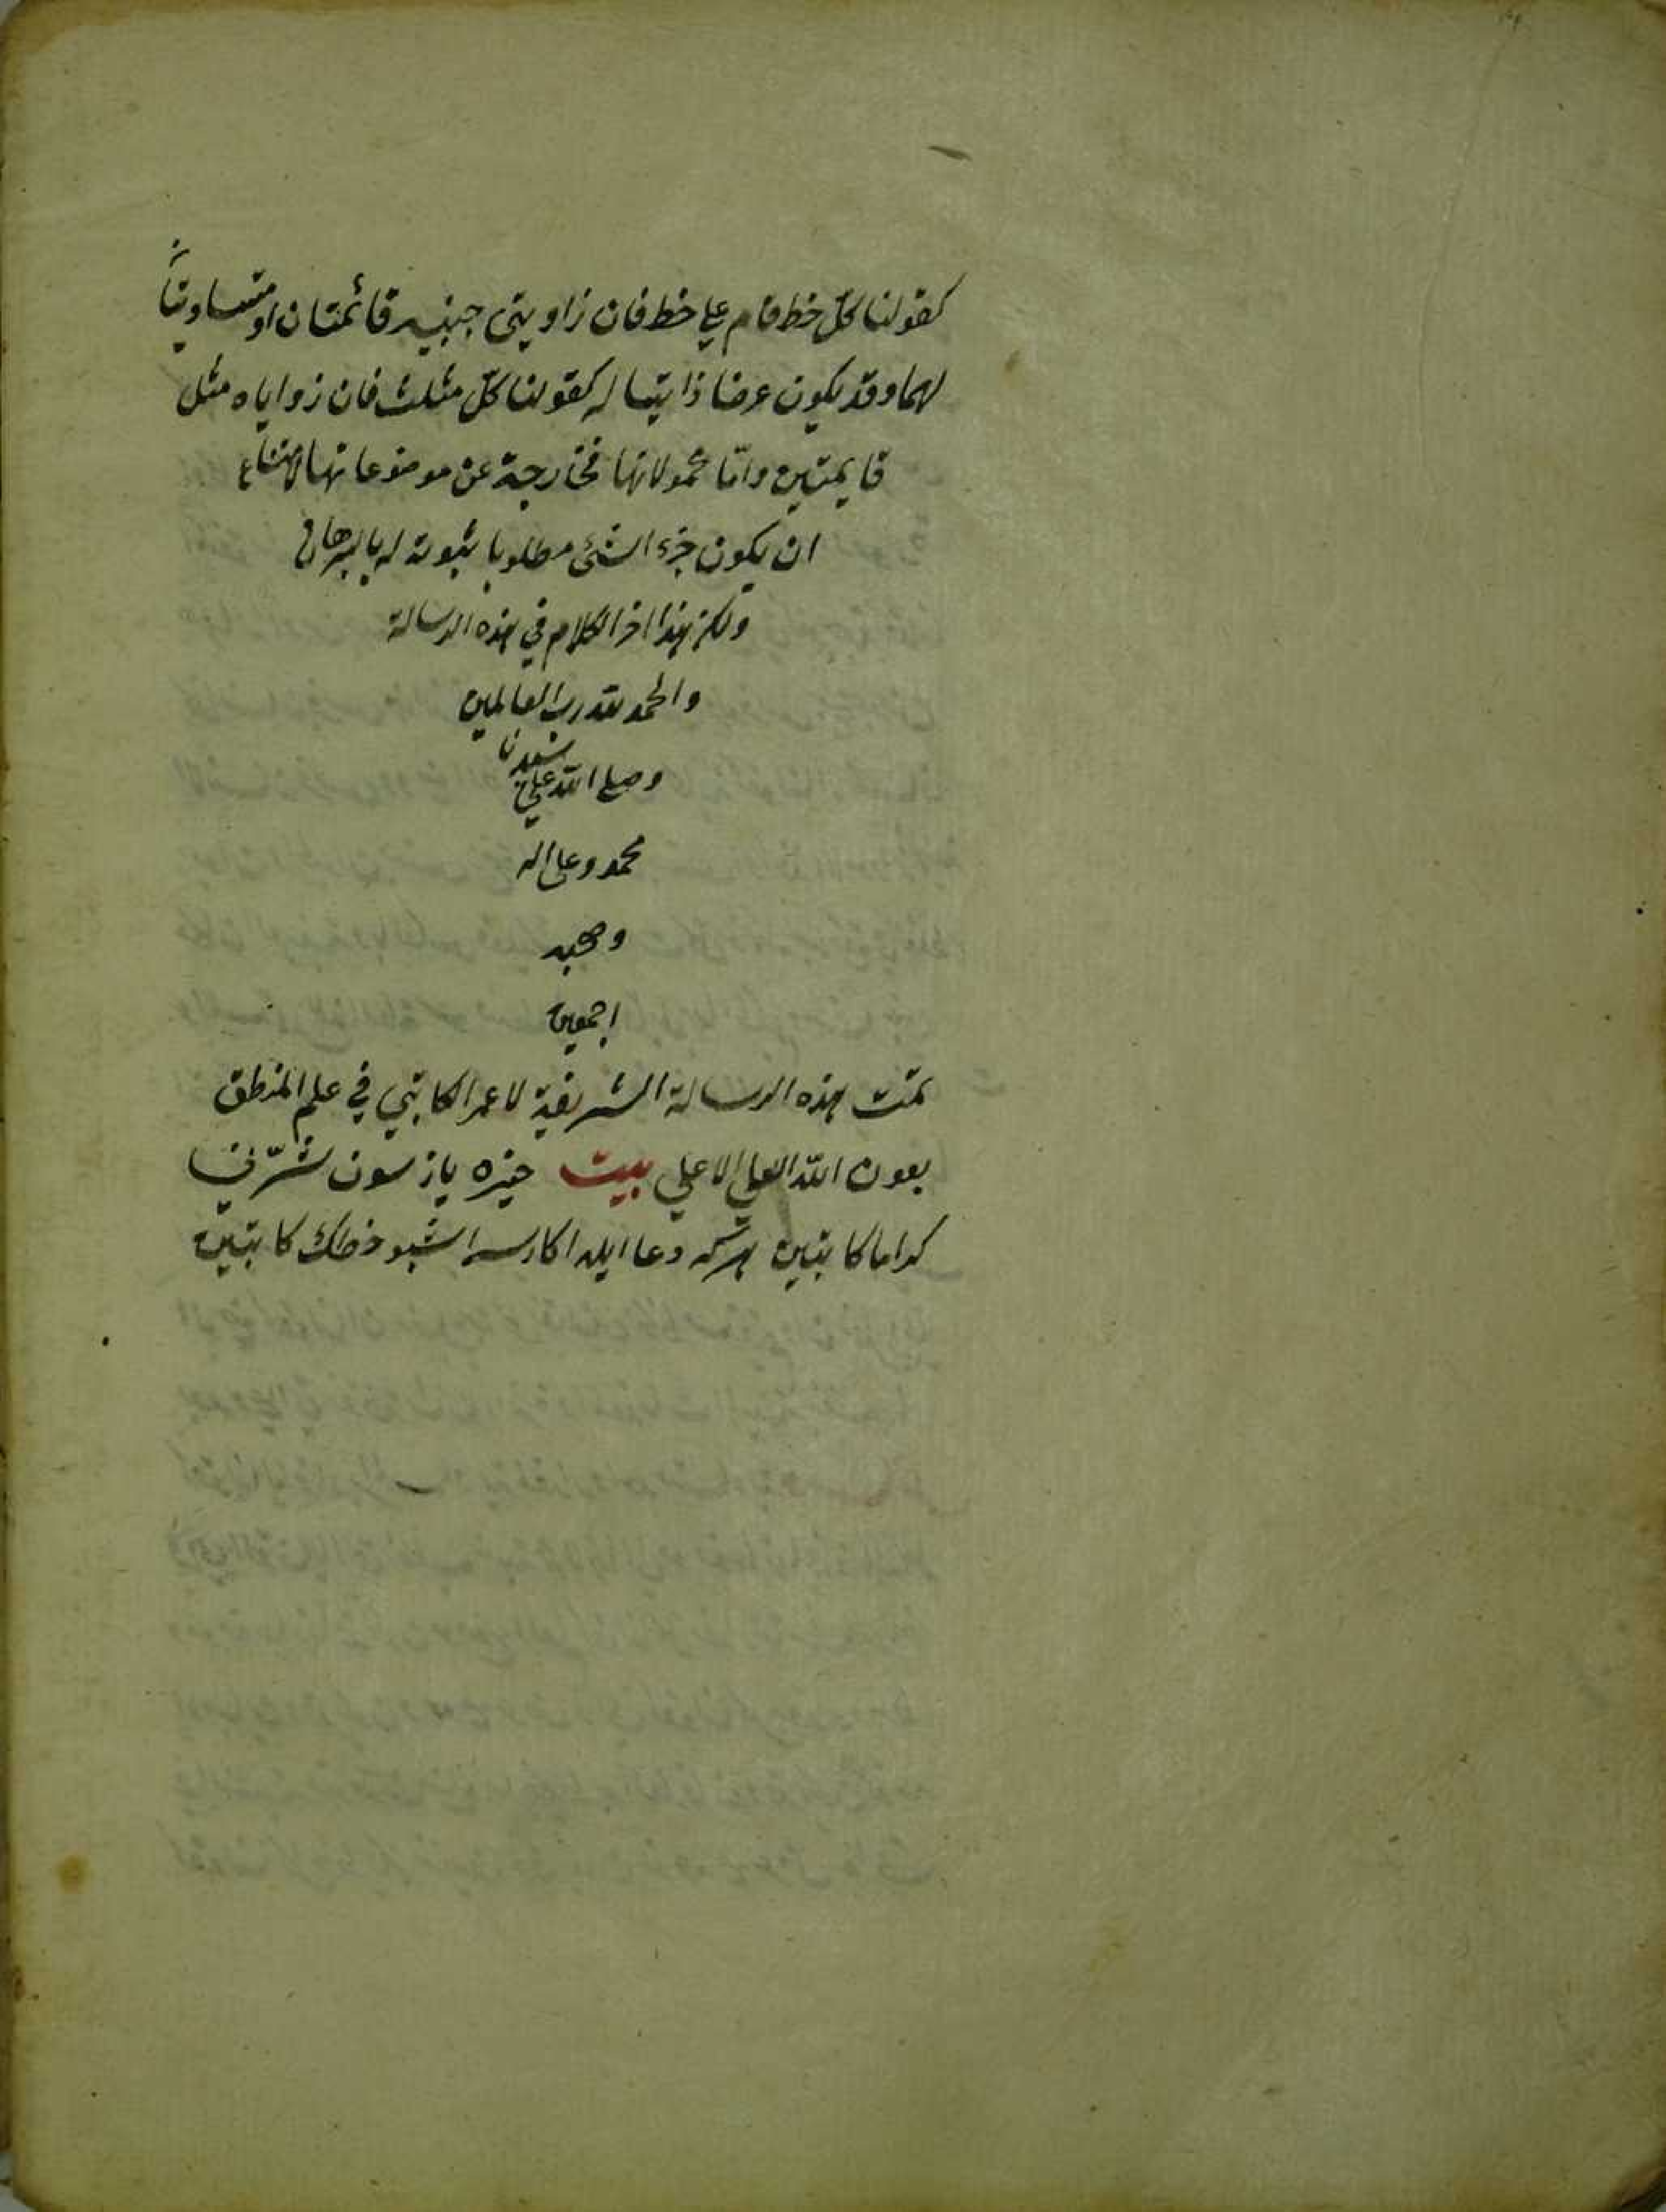 كقولنا كلّ خط قام على خط فان زاويتى جنبيه قائمتان او متساويتان
لهما وقد يكون عرضا ذاتيا له كقولنا كلّ مثلث فان زواياه مثل
قايمتين وامّا محمولاتها فخارجة عن موضوعاتها لامتناع
ان يكون جزء الشئ مطلوبا ثبوته له بالبرهان
ولكن هذا اخر الكلام في هذه الرسالة
والحمد لله رب العالمين
وصلى الله على سيدنا
محمد وعلى اله
وصحبه
اجمعين
تمت هذه الرسالة الشريفة لاعمر الكاتبي في علم المنطق
بعون الله العلي الاعلى بيت خيره يازسون شرّني
كراما كاتبين هركه دعا ايله اكارسه اشبو خطك كاتبين